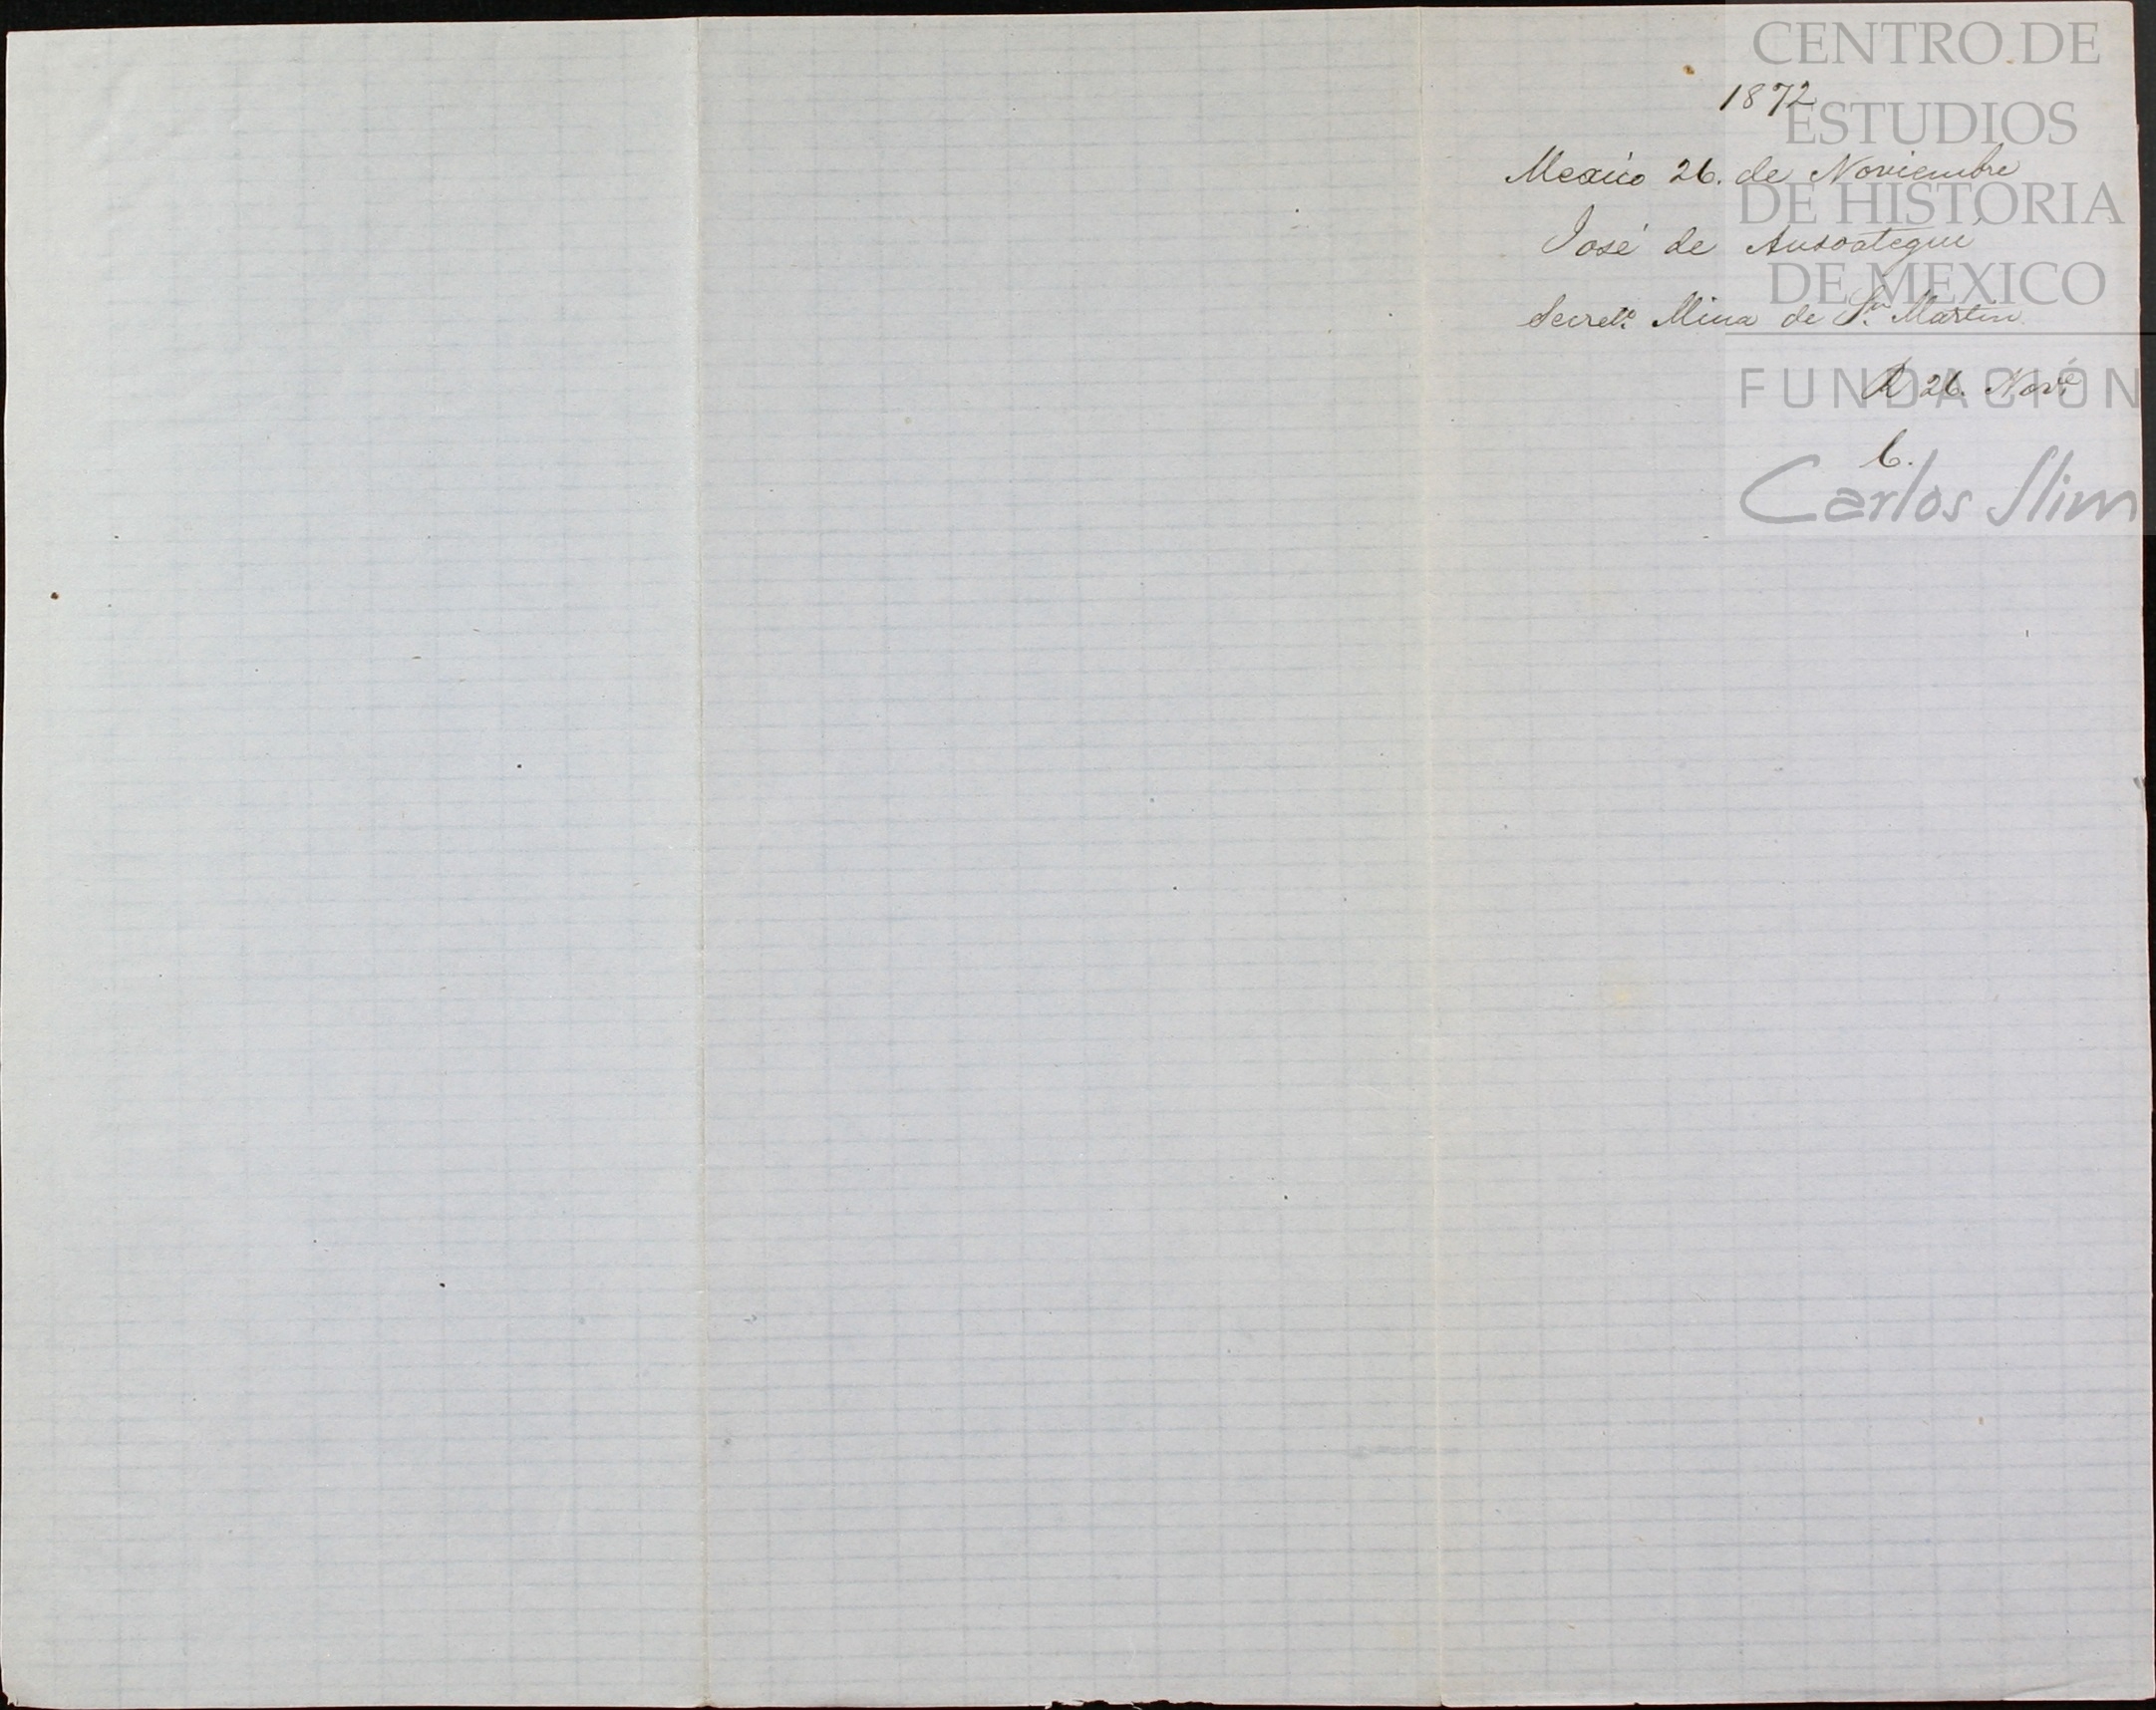 1872
Mexico 26. de Noviembre
José de Ansoategui
Secret.º Mina de S.n Martin
R 26. Nov.e
C.
CENTRO DE
ESTUDIOS
DE HISTORIA
DE MEXICO
FUNDACIÓN
Carlos Slim